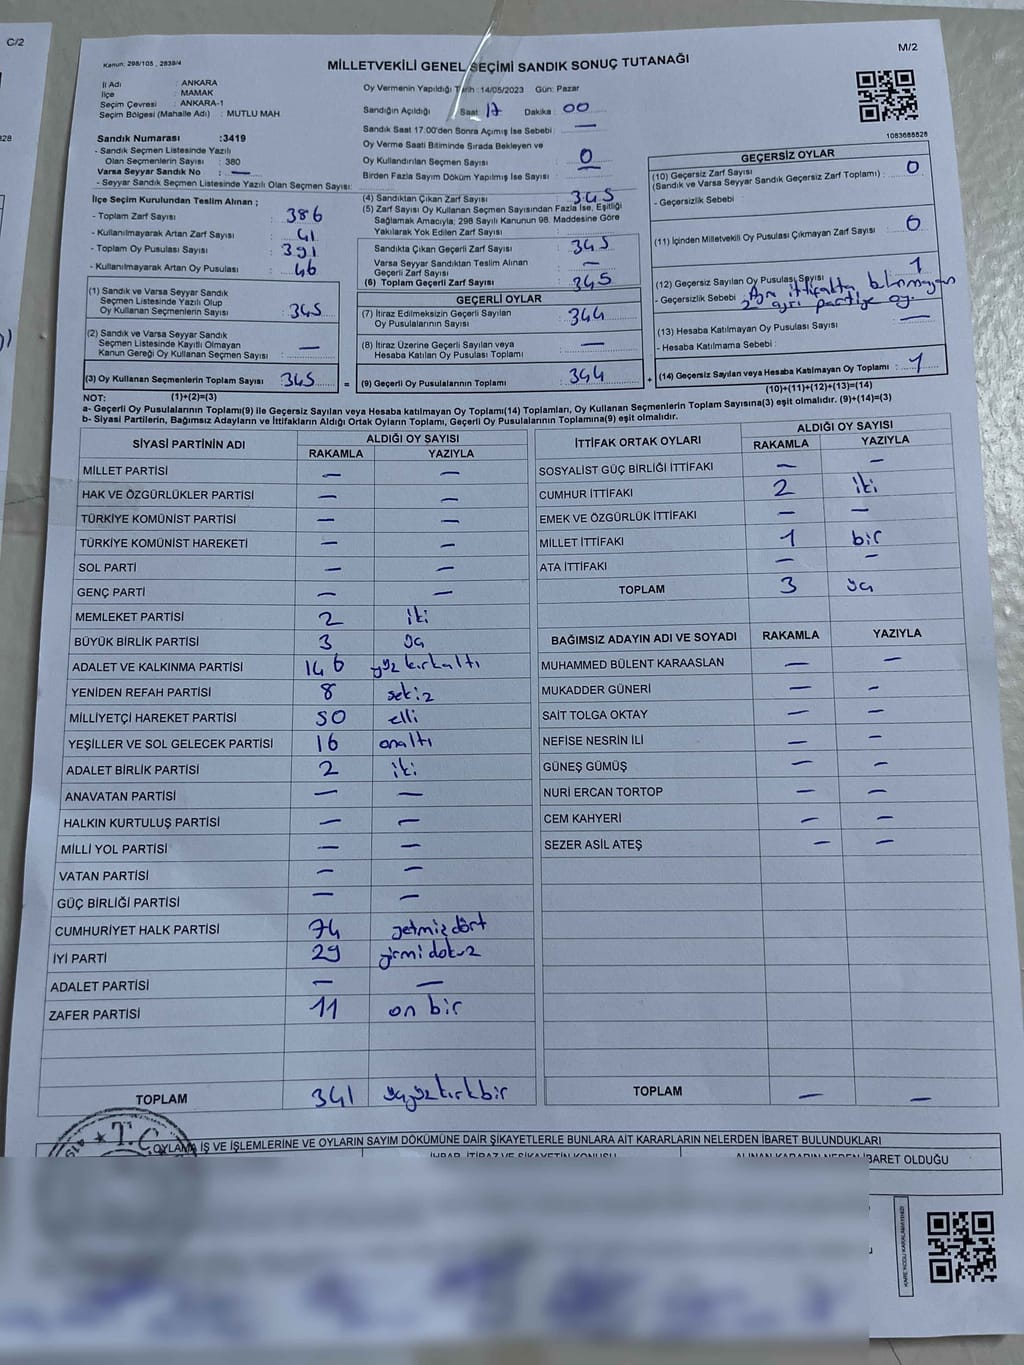 C/2
M/2
Kanun: 298/105, 2839/4
MİLLETVEKİLİ GENEL SEÇİMİ SANDIK SONUÇ TUTANAĞI
İl Adı : ANKARA
İlçe : MAMAK
Seçim Çevresi : ANKARA-1
Seçim Bölgesi (Mahalle Adı) : MUTLU MAH
Oy Vermenin Yapıldığı Tarih :14/05/2023 Gün: Pazar
Sandığın Açıldığı Saat: 17 Dakika : 00
Sandık Saat 17:00'den Sonra Açmış İse Sebebi : —
Oy Verme Saati Bitiminde Sırada Bekleyen ve
Oy Kullandırılan Seçmen Sayısı : 0
Birden Fazla Sayım Döküm Yapılmış İse Sayısı : —
1083688828
Sandık Numarası :3419
- Sandık Seçmen Listesinde Yazılı
Olan Seçmenlerin Sayısı : 380
Varsa Seyyar Sandık No : —
- Seyyar Sandık Seçmen Listesinde Yazılı Olan Seçmen Sayısı:
İlçe Seçim Kurulundan Teslim Alınan ;
- Toplam Zarf Sayısı : 386
- Kullanılmayarak Artan Zarf Sayısı : 41
- Toplam Oy Pusulası Sayısı : 391
- Kullanılmayarak Artan Oy Pusulası : 46
(1) Sandık ve Varsa Seyyar Sandık
Seçmen Listesinde Yazılı Olup
Oy Kullanan Seçmenlerin Sayısı : 345
(2) Sandık ve Varsa Seyyar Sandık
Seçmen Listesinde Kayıtlı Olmayan
Kanun Gereği Oy Kullanan Seçmen Sayısı : —
(3) Oy Kullanan Seçmenlerin Toplam Sayısı : 345 =
(4) Sandıktan Çıkan Zarf Sayısı : 345
(5) Zarf Sayısı Oy Kullanan Seçmen Sayısından Fazla İse, Eşitliği
Sağlamak Amacıyla, 298 Sayılı Kanunun 98. Maddesine Göre
Yakılarak Yok Edilen Zarf Sayısı :
Sandıkta Çıkan Geçerli Zarf Sayısı : 345
Varsa Seyyar Sandıktan Teslim Alınan
Geçerli Zarf Sayısı : —
(6) Toplam Geçerli Zarf Sayısı : 345
GEÇERLİ OYLAR
(7) İtiraz Edilmeksizin Geçerli Sayılan
Oy Pusulalarının Sayısı : 344
(8) İtiraz Üzerine Geçerli Sayılan veya
Hesaba Katılan Oy Pusulası Toplamı : —
(9) Geçerli Oy Pusulalarının Toplamı : 344 +
GEÇERSİZ OYLAR
(10) Geçersiz Zarf Sayısı : 0
(Sandık ve Varsa Seyyar Sandık Geçersiz Zarf Toplamı)
- Geçersizlik Sebebi :
(11) İçinden Milletvekili Oy Pusulası Çıkmayan Zarf Sayısı : 0
(12) Geçersiz Sayılan Oy Pusulası Sayısı : 1
- Geçersizlik Sebebi : Aynı ittifakta bulunmayan
2 ayrı partiye oy.
(13) Hesaba Katılmayan Oy Pusulası Sayısı : —
- Hesaba Katılmama Sebebi :
(14) Geçersiz Sayılan veya Hesaba Katılmayan Oy Toplamı : 1
NOT: (1)+(2)=(3)
(10)+(11)+(12)+(13)=(14)
a- Geçerli Oy Pusulalarının Toplamı(9) ile Geçersiz Sayılan veya Hesaba katılmayan Oy Toplamı(14) Toplamları, Oy Kullanan Seçmenlerin Toplam Sayısına(3) eşit olmalıdır. (9)+(14)=(3)
b- Siyasi Partilerin, Bağımsız Adayların ve İttifakların Aldığı Ortak Oyların Toplamı, Geçerli Oy Pusulalarının Toplamına(9) eşit olmalıdır.
SİYASİ PARTİNİN ADI ALDIĞI OY SAYISI
RAKAMLA YAZIYLA
MİLLET PARTİSİ — —
HAK VE ÖZGÜRLÜKLER PARTİSİ — —
TÜRKİYE KOMÜNİST PARTİSİ — —
TÜRKİYE KOMÜNİST HAREKETİ — —
SOL PARTİ — —
GENÇ PARTİ — —
MEMLEKET PARTİSİ 2 iki
BÜYÜK BİRLİK PARTİSİ 3 üç
ADALET VE KALKINMA PARTİSİ 146 yüz kırkaltı
YENİDEN REFAH PARTİSİ 8 sekiz
MİLLİYETÇİ HAREKET PARTİSİ 50 elli
YEŞİLLER VE SOL GELECEK PARTİSİ 16 onaltı
ADALET BİRLİK PARTİSİ 2 iki
ANAVATAN PARTİSİ — —
HALKIN KURTULUŞ PARTİSİ — —
MİLLİ YOL PARTİSİ — —
VATAN PARTİSİ — —
GÜÇ BİRLİĞİ PARTİSİ — —
CUMHURİYET HALK PARTİSİ 74 yetmiş dört
İYİ PARTİ 29 yirmi dokuz
ADALET PARTİSİ — —
ZAFER PARTİSİ 11 on bir
TOPLAM 341 üçyüz kırkbir
İTTİFAK ORTAK OYLARI ALDIĞI OY SAYISI
RAKAMLA YAZIYLA
SOSYALİST GÜÇ BİRLİĞİ İTTİFAKI — —
CUMHUR İTTİFAKI 2 iki
EMEK VE ÖZGÜRLÜK İTTİFAKI — —
MİLLET İTTİFAKI 1 bir
ATA İTTİFAKI — —
TOPLAM 3 üç
BAĞIMSIZ ADAYIN ADI VE SOYADI RAKAMLA YAZIYLA
MUHAMMED BÜLENT KARAASLAN — —
MUKADDER GÜNERİ — —
SAİT TOLGA OKTAY — —
NEFİSE NESRİN İLİ — —
GÜNEŞ GÜMÜŞ — —
NURİ ERCAN TORTOP — —
CEM KAHYERİ — —
SEZER ASİL ATEŞ — —
TOPLAM — —
T.C.
OYLAMA İŞ VE İŞLEMLERİNE VE OYLARIN SAYIM DÖKÜMÜNE DAİR ŞİKAYETLERLE BUNLARA AİT KARARLARIN NELERDEN İBARET BULUNDUKLARI
İHBAR, İTİRAZ VE ŞİKAYETİN KONUSU ALINAN KARARIN NEDEN İBARET OLDUĞU
KARE KODU KARALAMAYINIZ!